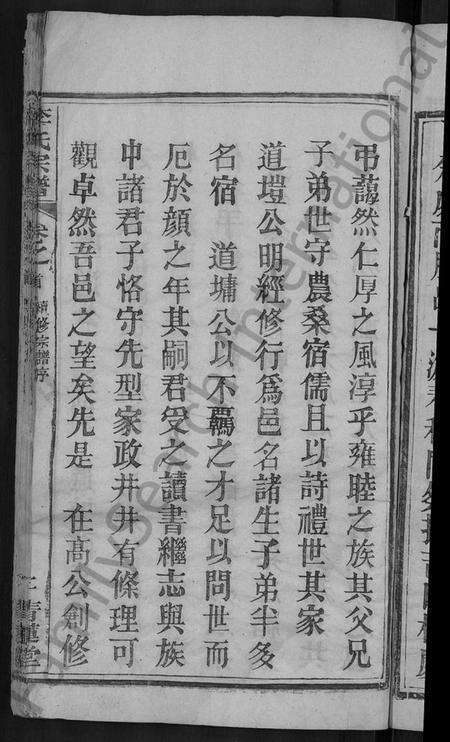 弔藹然仁厚之風淳乎雍睦之族其父兄
子弟世守農桑宿儒且以詩禮世其家
道塏公明經修行為邑名諸生子弟半多
名宿　道墉公以不覊之才足以問世而
厄於顏之年其嗣君受之讀書繼志與族
中諸君子恪守先型家政井井有條理可
觀卓然吾邑之望矣先是　在高公創修
李氏宗譜
卷之首 續修宗譜序
二 青蓮堂
FamilySearch International